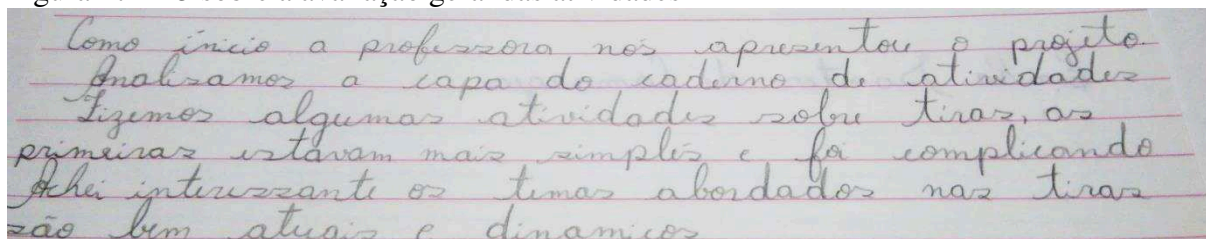 Como ínicio a professora nos apresentou o projeto.
Analisamos a capa do caderno de atividades
Fizemos algumas atividades sobre tiras, as
primeiras estavam mais simples e foi complicando
Achei interessante os temas abordados nas tiras
são bem atuais e dinamicos